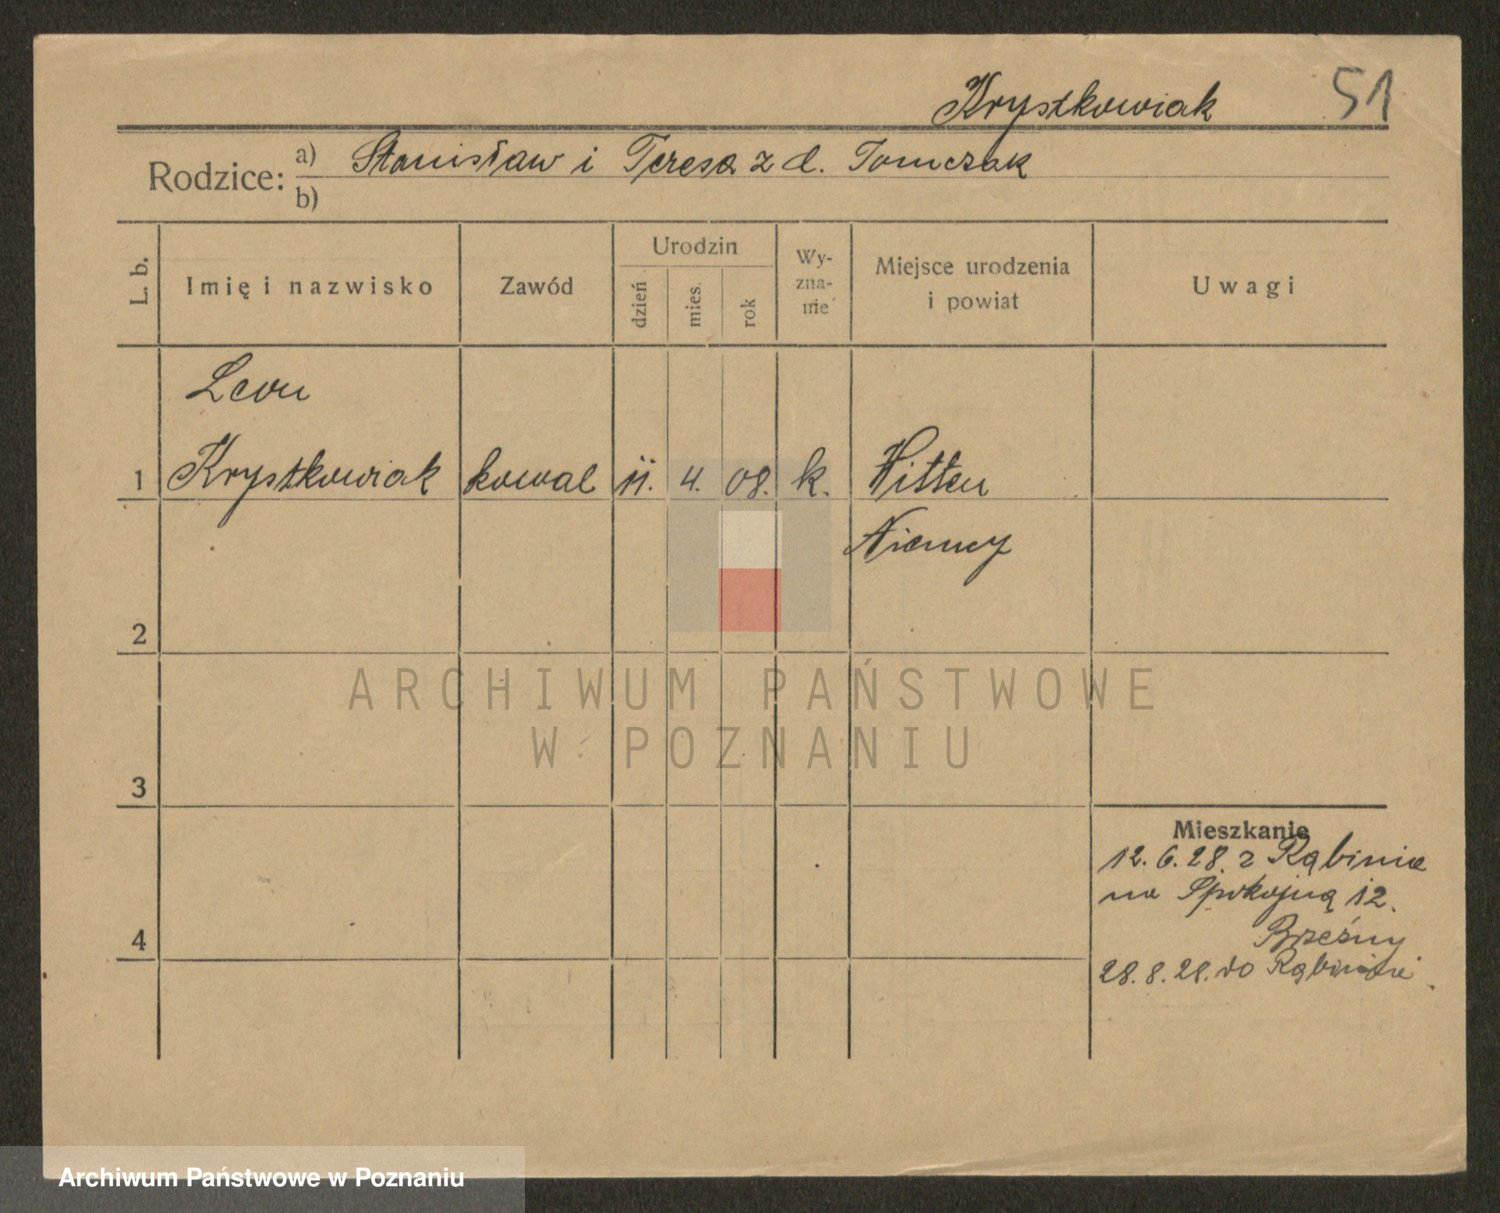 Krystkowiak 51
Rodzice: a) Stanisław i Teresa z d. Tomczak
b)
L. b. Imię i nazwisko Zawód Urodzin dzień mies. rok Wy-zna-nie Miejsce urodzenia i powiat Uwagi
Leon
1 Krystkowiak kowal 11. 4. 08. k. Witten
Niemcy
2
ARCHIWUM PAŃSTWOWE
W POZNANIU
3
4
Mieszkanie
12.6.28. z Rąbinia
na Spokojną 12.
28.8.28. do Rąbinia
Archiwum Państwowe w Poznaniu